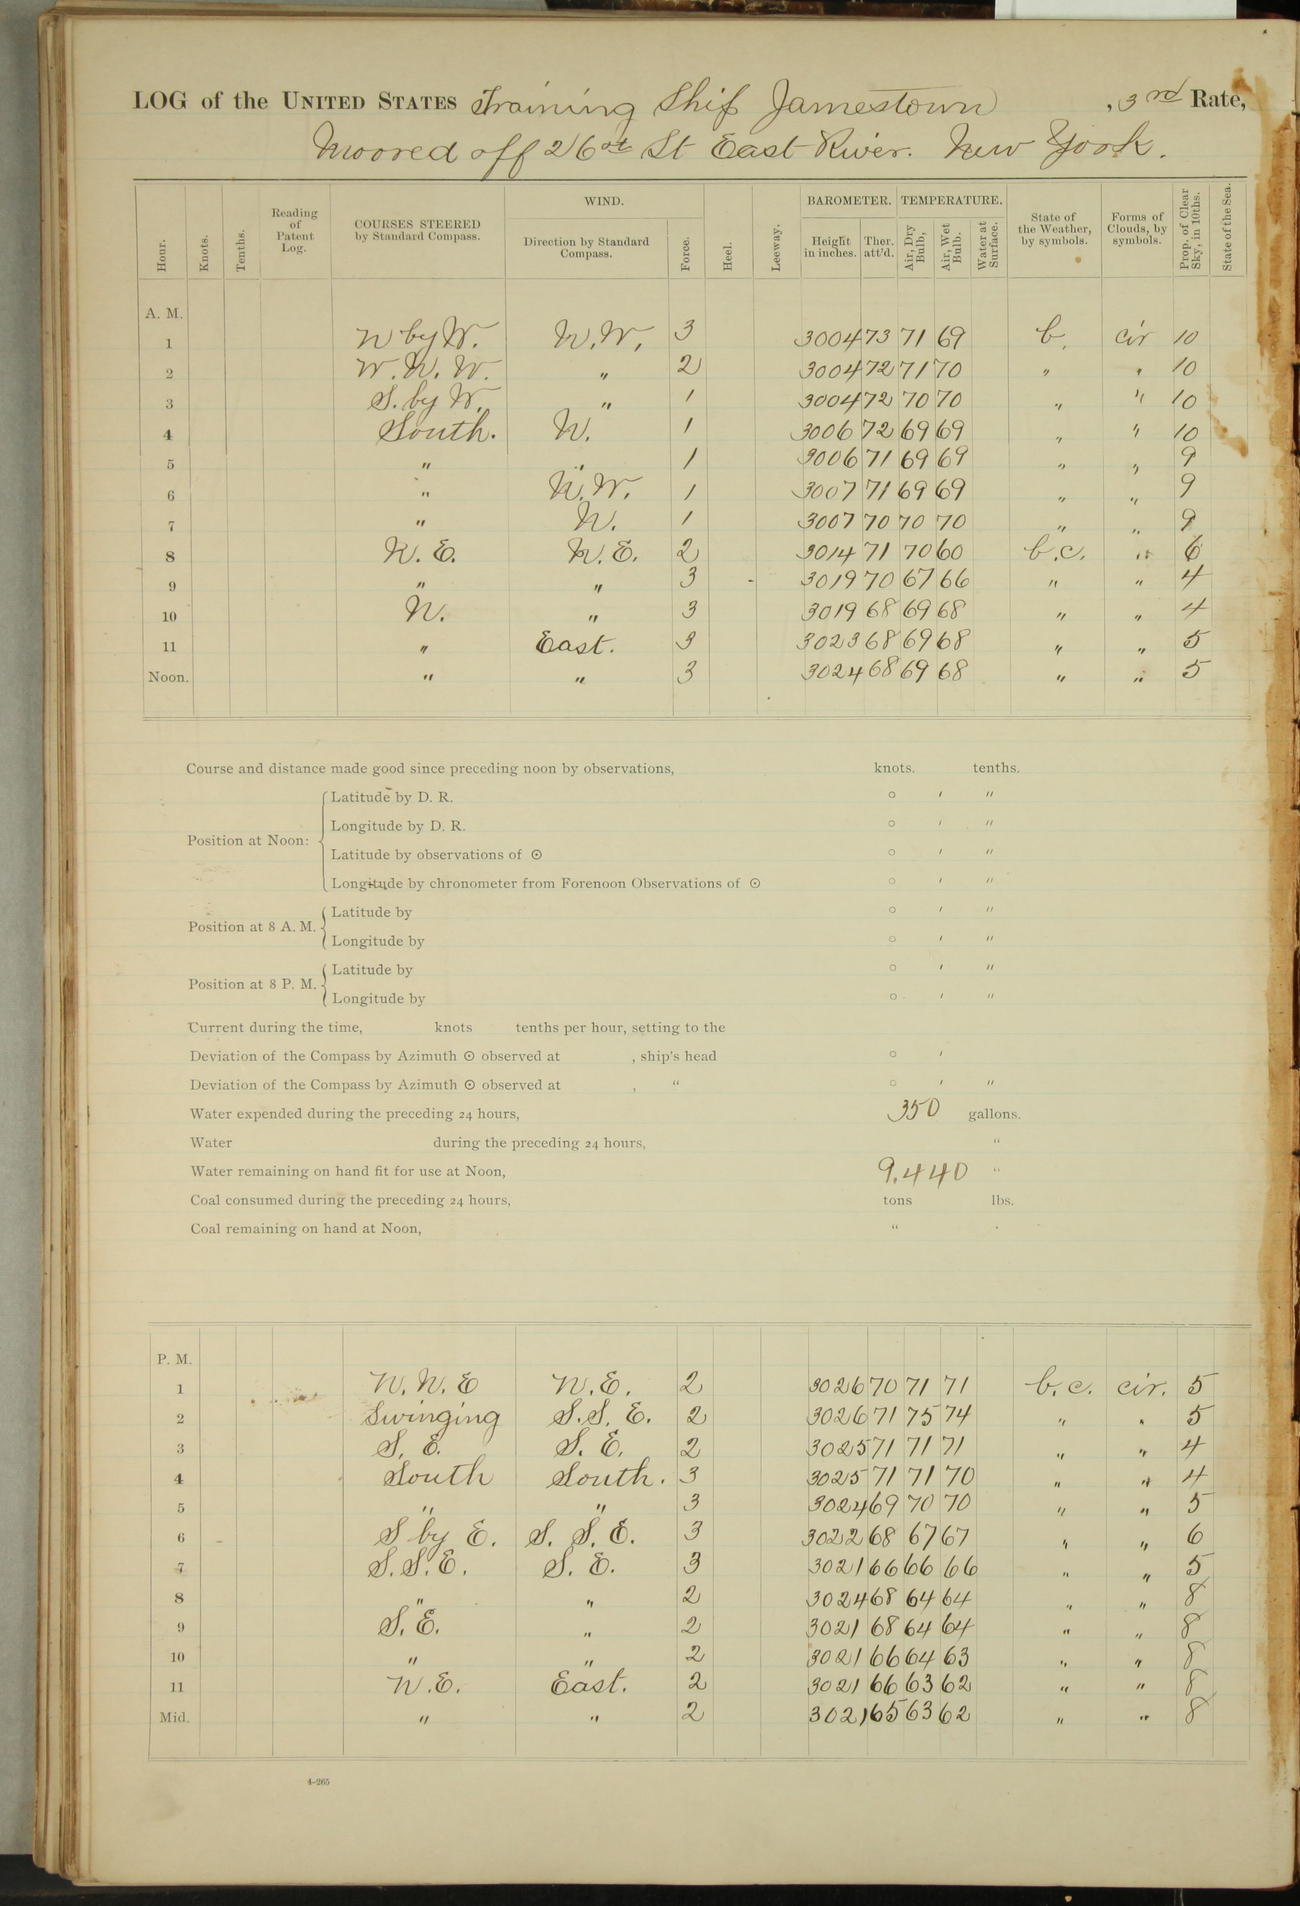 LOG of the UNITED STATES Training Ship Jamestown , 3rd Rate,
Moored off 26th St East River. New York.
Hour. Knots. Tenths. Reading of Patent Log. COURSES STEERED by Standard Compass. WIND. Direction by Standard Compass. Force. Heel. Leeway. BAROMETER. Height in inches. Ther. att'd. TEMPERATURE. Air, Dry Bulb, Air, Wet Bulb. Water at Surface. State of the Weather, by symbols. Forms of Clouds, by symbols. Prop. of Clear Sky, in 10ths. State of the Sea.
A. M.
1 N by W. N.W. 3 3004 73 71 69 b. cir 10
2 W.N.W. " 2 3004 72 71 70 " " 10
3 S. by W. " 1 3004 72 70 70 " " 10
4 South. N. 1 3006 72 69 69 " " 10
5 " " 1 3006 71 69 69 " " 9
6 " N.W. 1 3007 71 69 69 " " 9
7 " N. 1 3007 70 70 70 " " 9
8 N.E. N.E. 2 3014 71 70 60 b.c. " 6
9 " " 3 3019 70 67 66 " " 4
10 N. " 3 3019 68 69 68 " " 4
11 " East. 3 3023 68 69 68 " " 5
Noon. " " 3 3024 68 69 68 " " 5
Course and distance made good since preceding noon by observations, knots. tenths.
Position at Noon: Latitude by D. R. ° ′ ″
Longitude by D. R. ° ′ ″
Latitude by observations of ⊙ ° ′ ″
Longitude by chronometer from Forenoon Observations of ⊙ ° ′ ″
Position at 8 A. M. Latitude by ° ′ ″
Longitude by ° ′ ″
Position at 8 P. M. Latitude by ° ′ ″
Longitude by ° ′ ″
Current during the time, knots tenths per hour, setting to the
Deviation of the Compass by Azimuth ⊙ observed at , ship's head ° ′
Deviation of the Compass by Azimuth ⊙ observed at , " ° ′ ″
Water expended during the preceding 24 hours, 350 gallons.
Water during the preceding 24 hours, "
Water remaining on hand fit for use at Noon, 9.440 "
Coal consumed during the preceding 24 hours, tons lbs.
Coal remaining on hand at Noon, "
P. M.
1 N.N.E N.E. 2 3026 70 71 71 b.c. cir. 5
2 Swinging S.S.E. 2 3026 71 75 74 " " 5
3 S.E. S.E. 2 3025 71 71 71 " " 4
4 South South. 3 3025 71 71 70 " " 4
5 " " 3 3024 69 70 70 " " 5
6 S by E. S.S.E. 3 3022 68 67 67 " " 6
7 S.S.E. S.E. 3 3021 66 66 66 " " 5
8 " " 2 3024 68 64 64 " " 8
9 S.E. " 2 3021 68 64 64 " " 8
10 " " 2 3021 66 64 63 " " 8
11 N.E. East. 2 3021 66 63 62 " " 8
Mid. " " 2 3021 65 63 62 " " 8
4-265